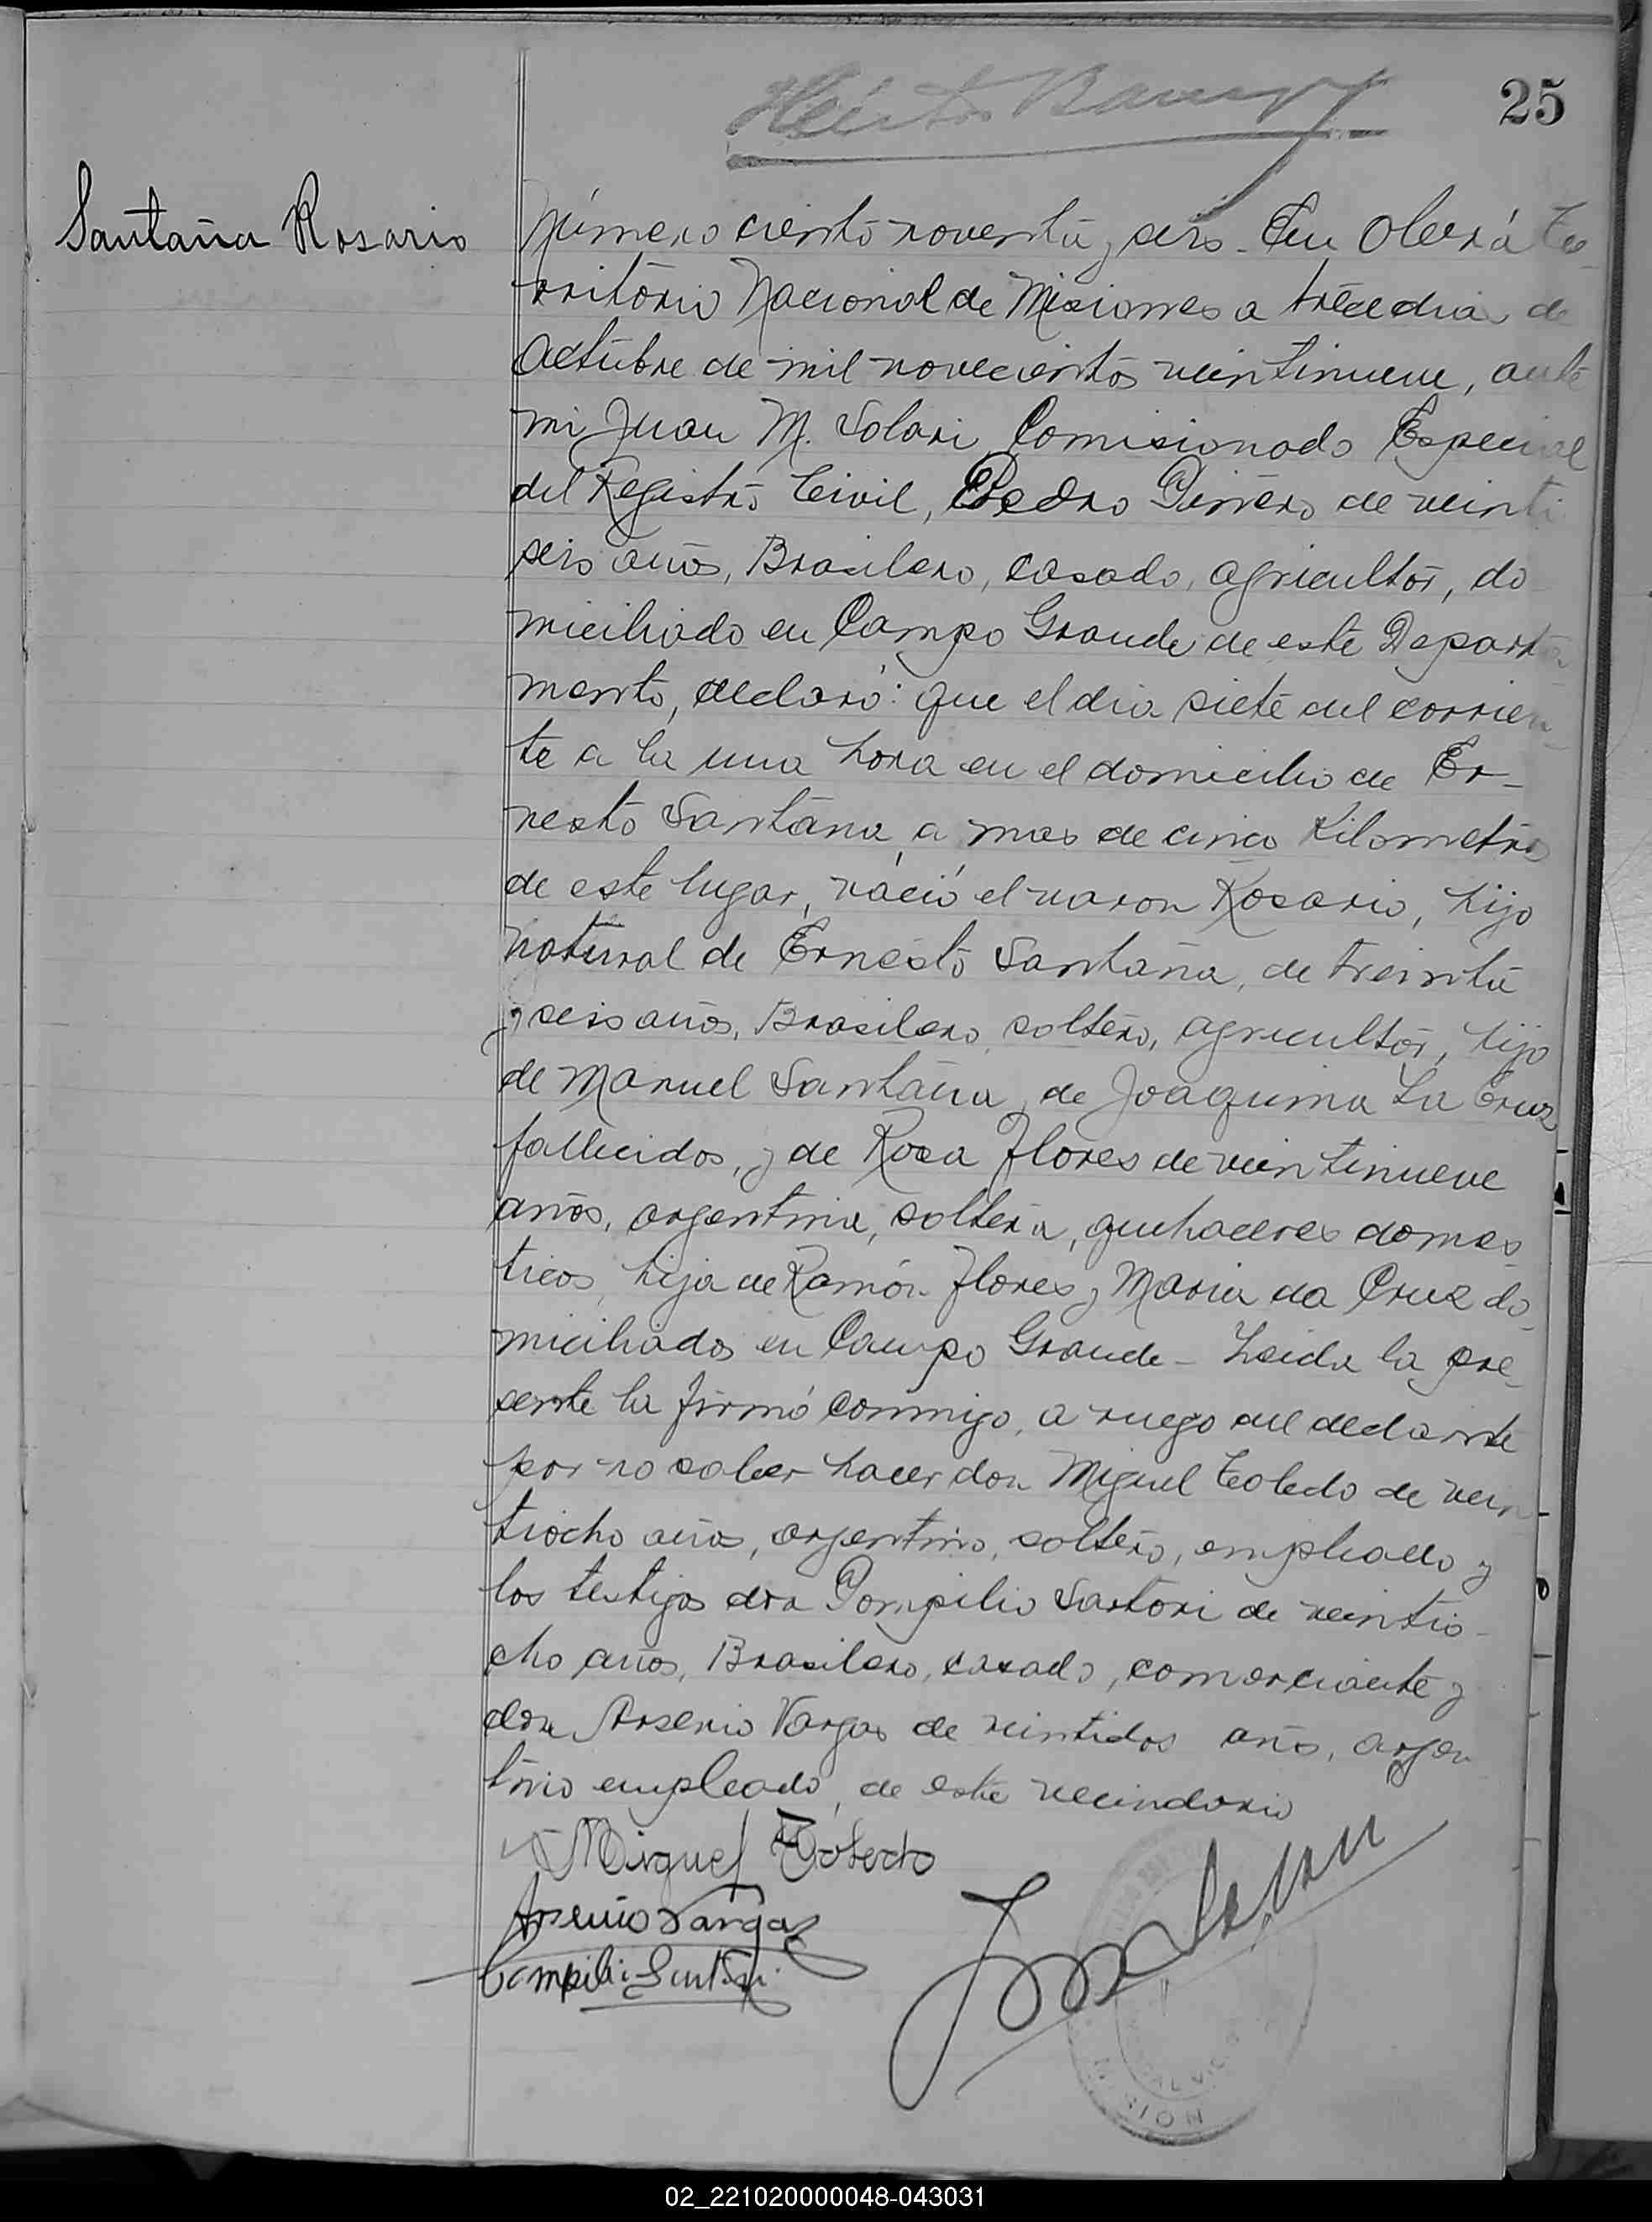 25
Santaña Rosario
Número ciento noventa y seis. En Oberá Te-
rritorio Nacional de Misiones a trece dias de
Octubre de mil novecientos veintinueve, ante
mi Juan M. Solari, Comisionado Especial
del Registro Civil, Pedro de veinti
seis años, Brasilero, casado, agricultor, do
miciliado en Campo Grande de este Departa-
mento, declaró: que el dia siete del corrien-
te a la una hora en el domicilio de Er-
nesto Santana, a mas de cinco Kilometros
de este lugar, nació el varon Rosario, hijo
natural de Ernesto Santaña, de treinta
y seis años, Brasilero, soltero, agricultor, hijo
de Manuel Santaña y de Joaquina La Cruz
fallecidos, y de Rosa Flores de veintinueve
años, argentina, soltera, quehaceres domes
ticos, hija de Ramón Flores y Maria da Cruz do-
miciliados en Campo Grande - Leida la pre-
sente la firmó conmigo, a ruego del declarante
por no saber hacer don Miguel Toledo de vein
tiocho años, argentino, soltero, empleado y
los testigos don Pompilio Sartori de veintio-
cho años, Brasilero, casado, comerciante y
don Arsenio Vargas de veintidos años, argen
tino empleado, de este vecindario
Miguel Toledo
Arsenio Vargas
Pompilio Sartori
02_221020000048-043031